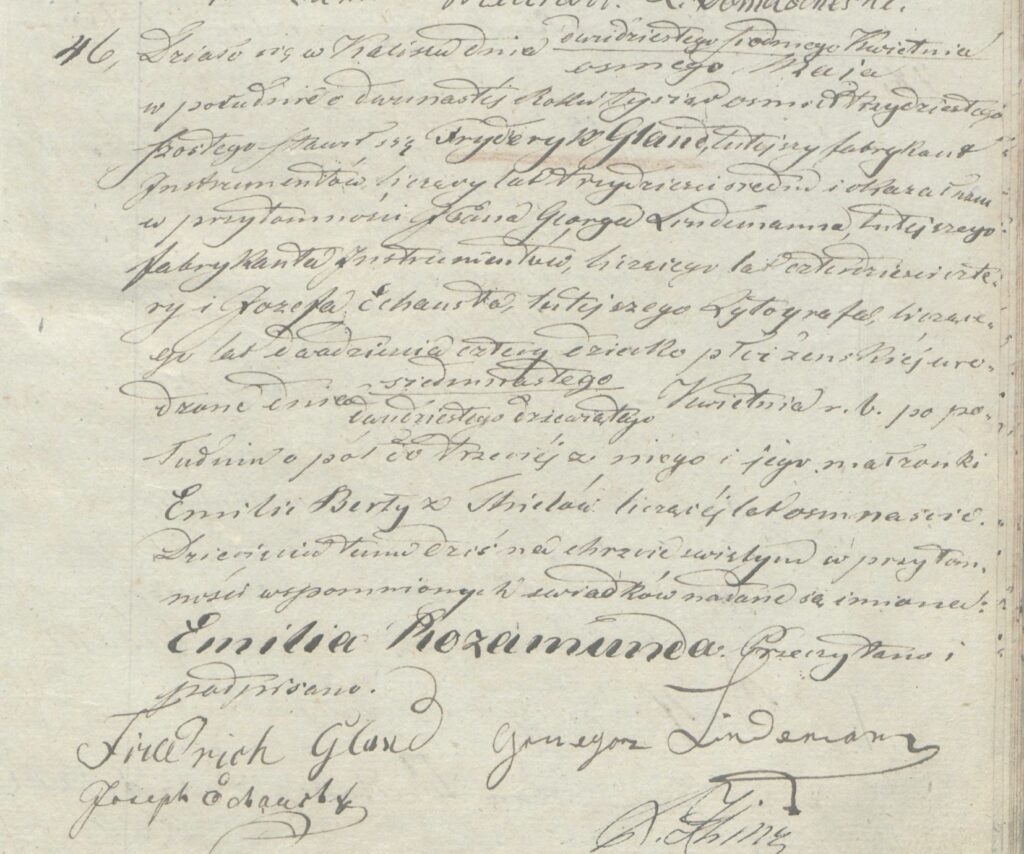 46, Działo się w Kaliszu dnia dwudziestego siodmego Kwietnia
osmego Maja
w południe o dwunastej Roku tysiąc osmset trzydziestego
szostego stawił się Fryderyk Gland, tutejszy fabrykant
Instrumentów liczący lat trzydzieści siedm i okazał nam
w przytomności Jana George Lindemanna, tutejszego
fabrykanta Instrumentów, liczącego lat czterdzieści czte-
ry i Jozefa Echaustа, tutejszego Lytografa, liczące-
go lat dwadzieścia cztery dziecko płci żenskiéj uro-
dzone dnia siedmnastego Kwietnia r. b. po po-
dwudziestego dziewiątego
łudniu o pół do trzeciéj z niego i jego małżonki
Emilii Berty z Thielów liczącéj lat osmnaście.
Dziecięciu temu dziś na chrzcie swiętym w przytom-
ności wspomnionych swiadków nadane są imiona:
Emilia Rozamunda. Przeczytano i
podpisano.
Friedrich Gland Grzegorz Lindeman
Joseph Echaust